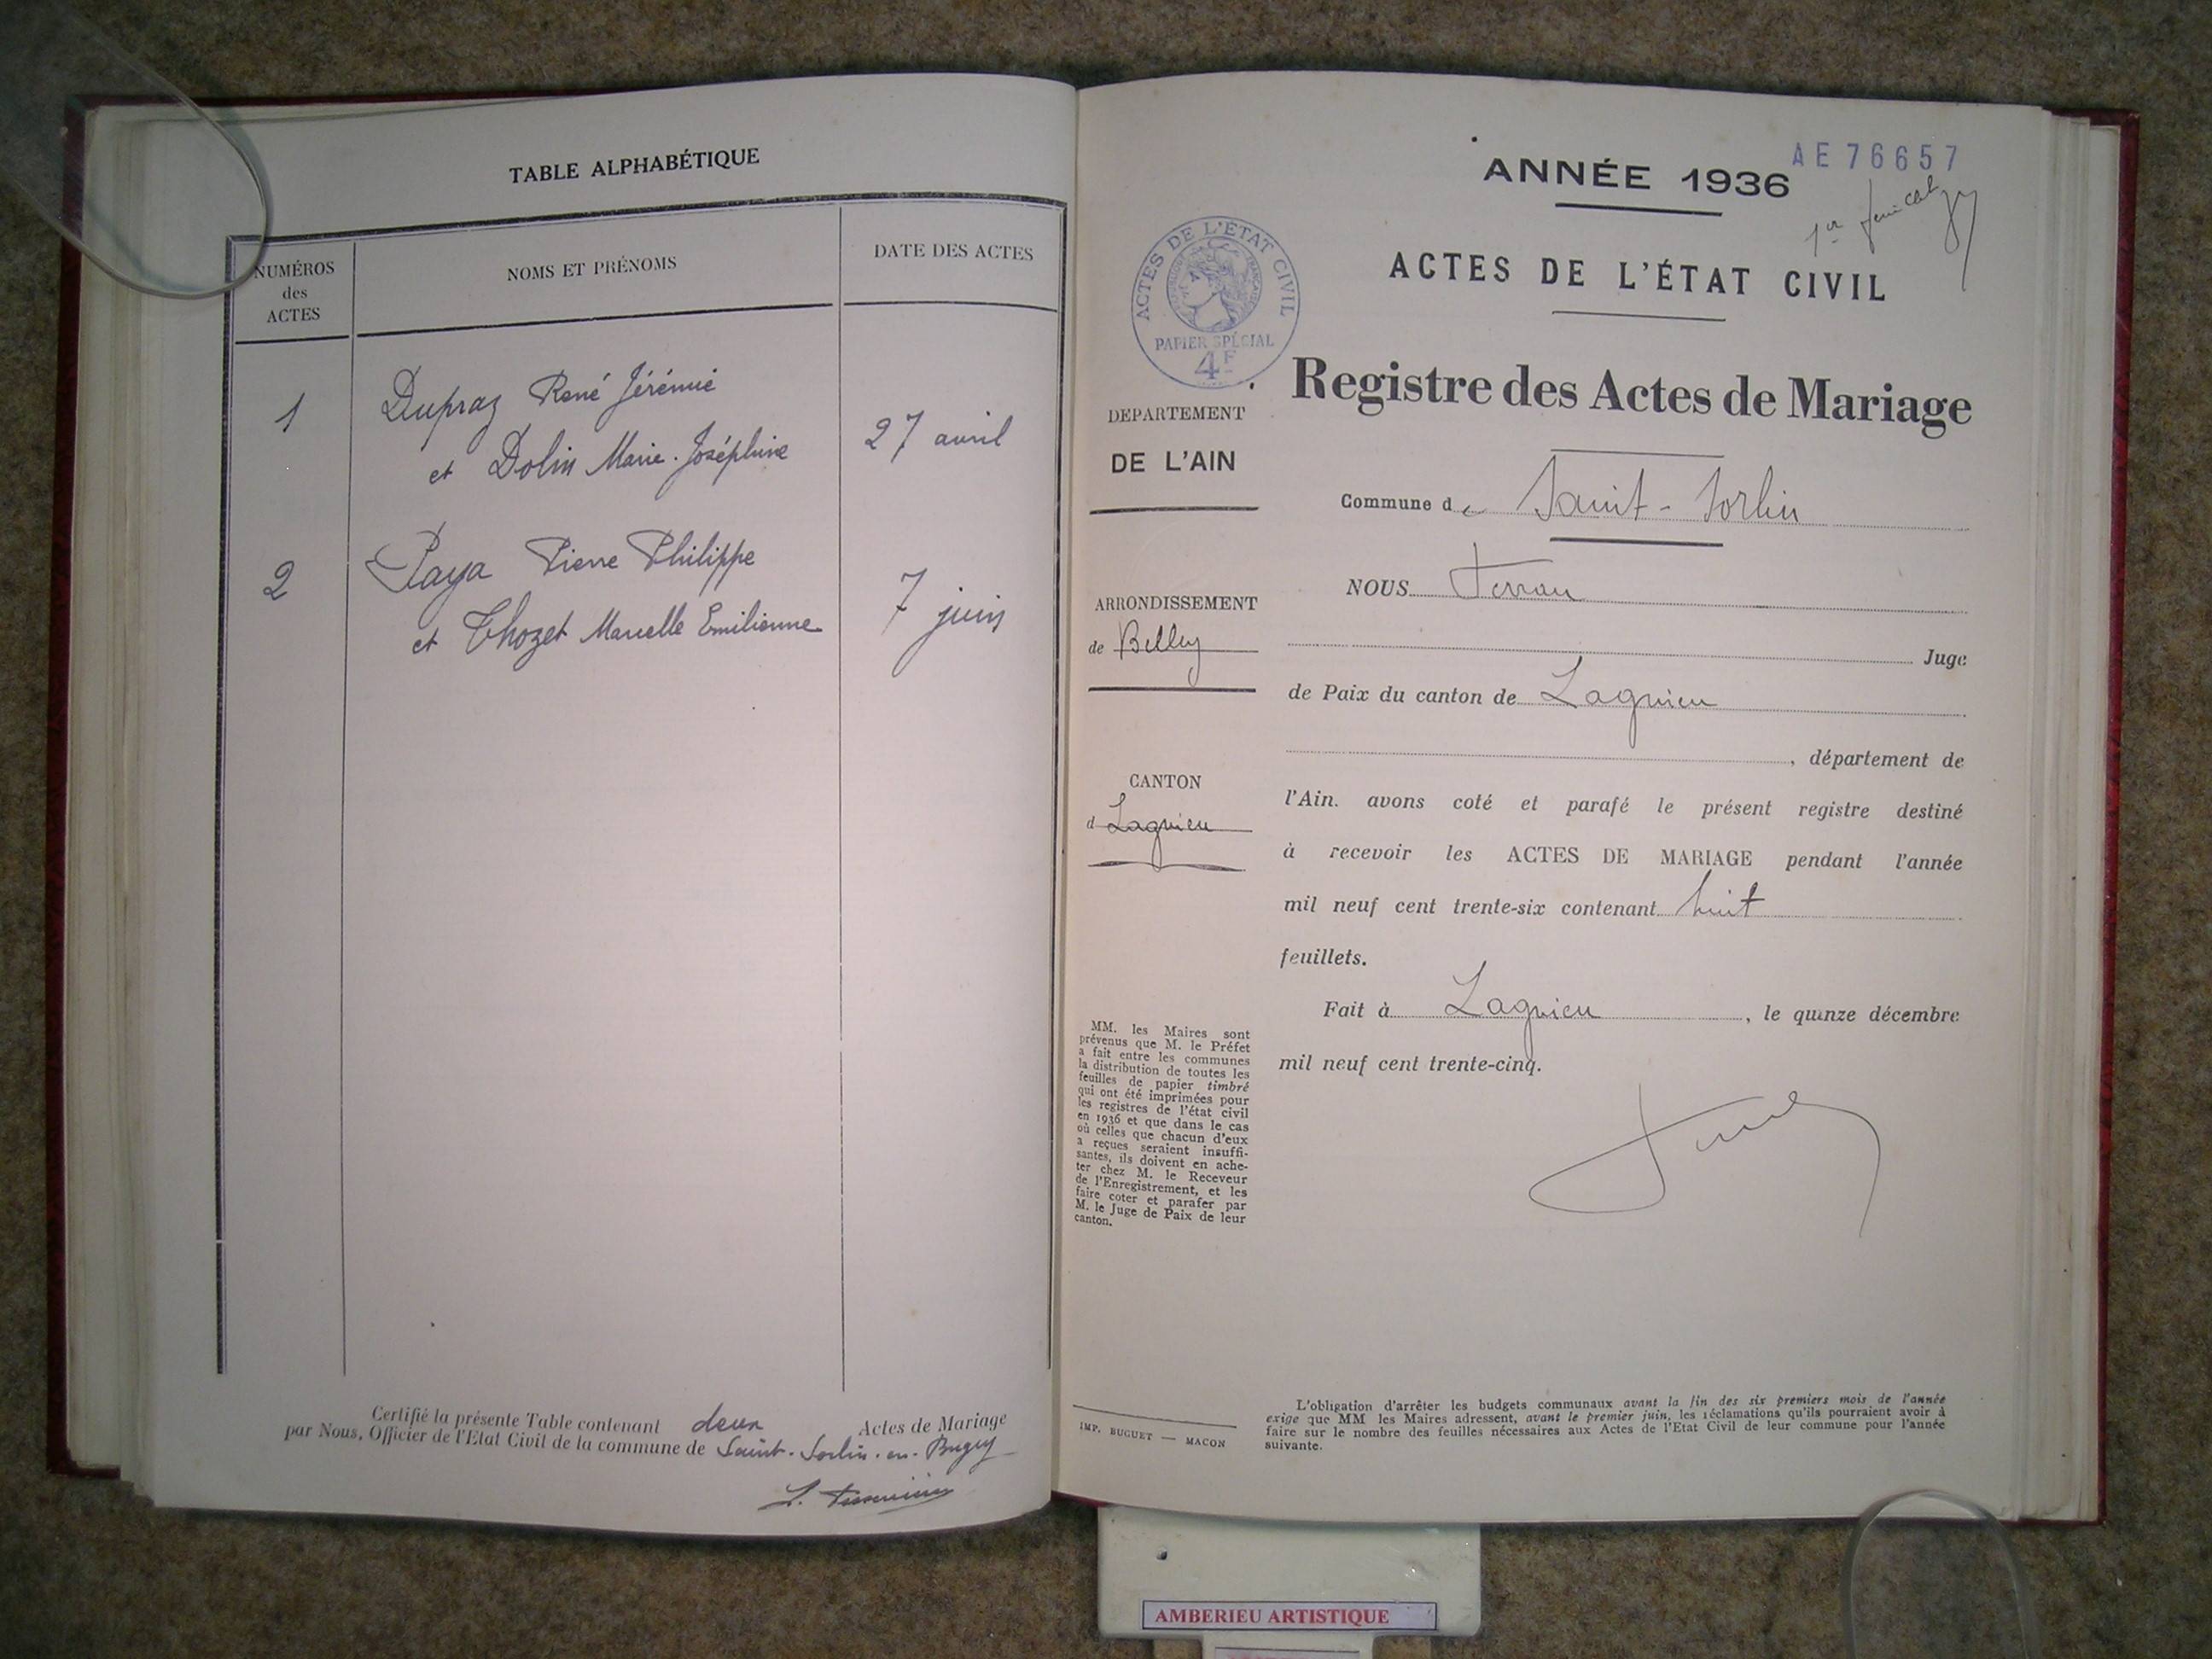 TABLE ALPHABÉTIQUE
NUMÉROS
des
ACTES
NOMS ET PRÉNOMS
DATE DES ACTES
1
Dupraz René Jérémie
et Dolin Marie-Joséphine
27 avril
2
Paya Pierre Philippe
et Thozet Marcelle Emilienne
7 juin
Certifié la présente Table contenant deux Actes de Mariage
par Nous, Officier de l'Etat Civil de la commune de Saint-Sorlin-en-Bugey
AE 76657
ANNÉE 1936
1er
ACTES DE L'ÉTAT CIVIL
ACTES DE L'ÉTAT CIVIL
RÉPUBLIQUE FRANÇAISE
PAPIER SPÉCIAL
4F
Registre des Actes de Mariage
DEPARTEMENT
DE L'AIN
Commune de Saint-Sorlin
ARRONDISSEMENT
de Belley
CANTON
d Lagnieu
NOUS
Juge
de Paix du canton de Lagnieu
, département de
l'Ain. avons coté et parafé le présent registre destiné
à recevoir les ACTES DE MARIAGE pendant l'année
mil neuf cent trente-six contenant huit
feuillets.
Fait à Lagnieu, le quinze décembre
mil neuf cent trente-cinq.
MM. les Maires sont
prévenus que M. le Préfet
a fait entre les communes
la distribution de toutes les
feuilles de papier timbré
qui ont été imprimées pour
les registres de l'état civil
en 1936 et que dans le cas
où celles que chacun d'eux
a reçues seraient insuffi-
santes, ils doivent en ache-
ter chez M. le Receveur
de l'Enregistrement, et les
faire coter et parafer par
M. le Juge de Paix de leur
canton.
IMP. BUGUET — MACON
L'obligation d'arrêter les budgets communaux avant la fin des six premiers mois de l'année
exige que MM les Maires adressent, avant le premier juin, les réclamations qu'ils pourraient avoir à
faire sur le nombre des feuilles nécessaires aux Actes de l'Etat Civil de leur commune pour l'année
suivante.
AMBERIEU ARTISTIQUE